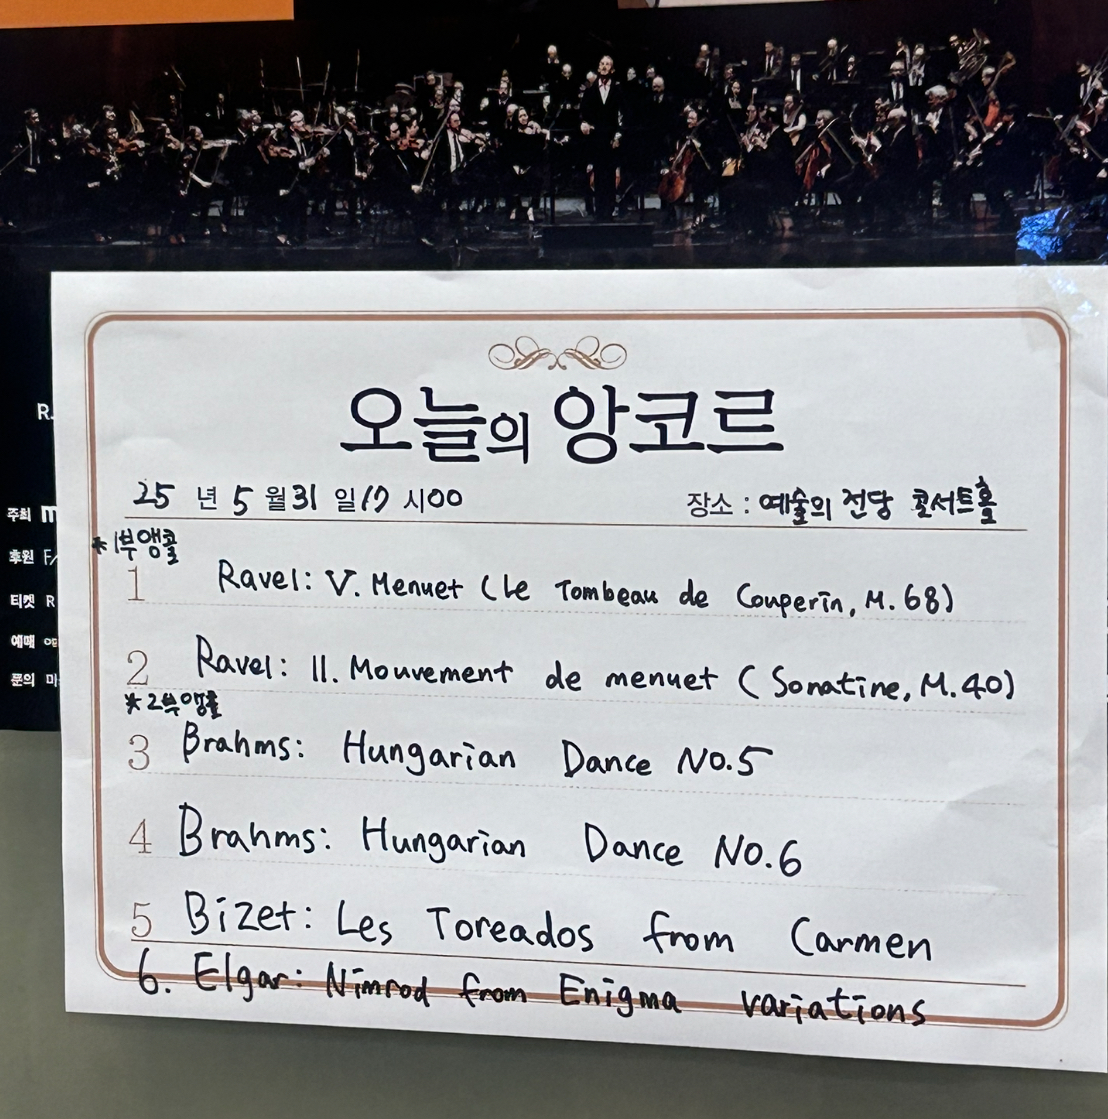 R.
주최 m
후원 F/
티켓 R
예매
문의 마
오늘의 앙코르
25 년 5 월 31 일 17 시00
장소 : 예술의 전당 콘서트홀
*1부앵콜
1 Ravel: V. Menuet (Le Tombeau de Couperin, M. 68)
2 Ravel: II. Mouvement de menuet (Sonatine, M.40)
*2부앵콜
3 Brahms: Hungarian Dance No.5
4 Brahms: Hungarian Dance No.6
5 Bizet: Les Toreados from Carmen
6. Elgar: Nimrod from Enigma variations